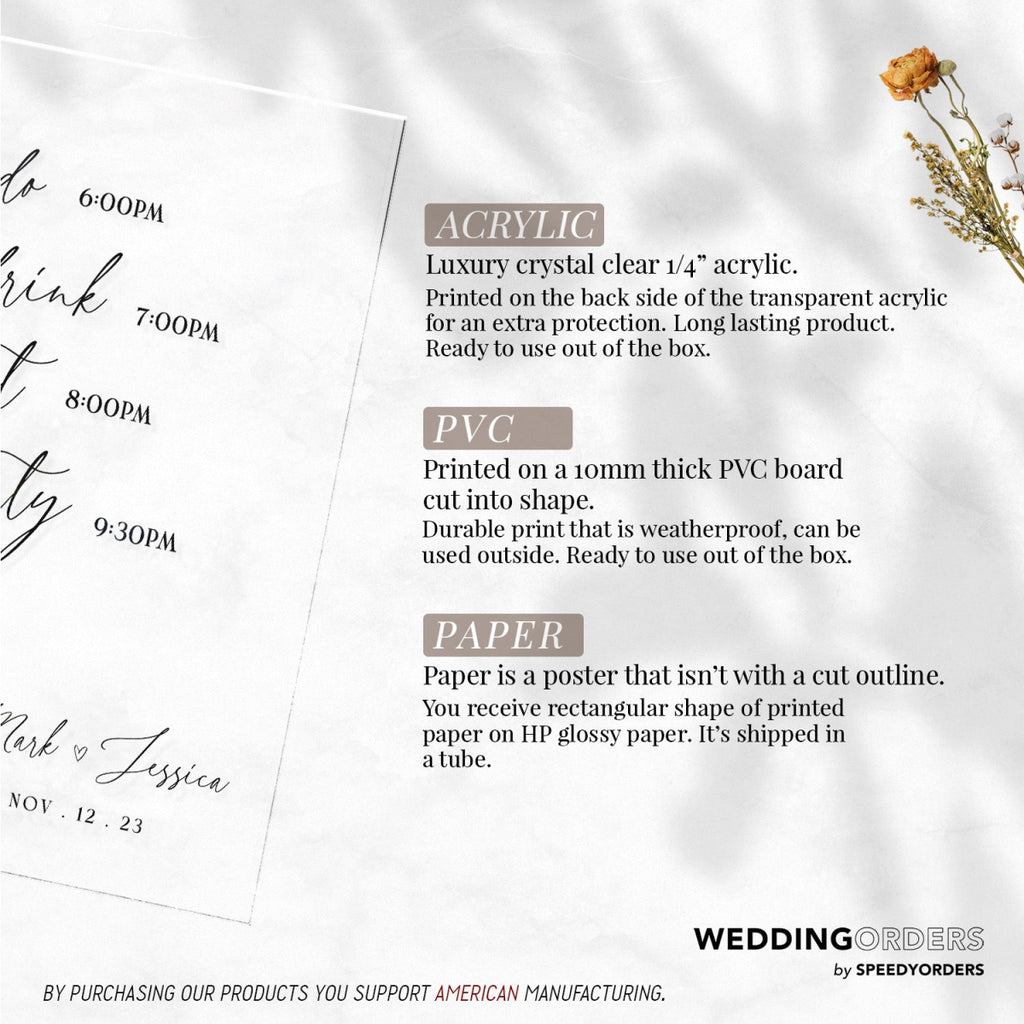 do 6:00PM
rink 7:00PM
t 8:00PM
ty 9:30PM
Mark ♡ Jessica
NOV . 12 . 23
ACRYLIC
Luxury crystal clear 1/4” acrylic.
Printed on the back side of the transparent acrylic
for an extra protection. Long lasting product.
Ready to use out of the box.
PVC
Printed on a 10mm thick PVC board
cut into shape.
Durable print that is weatherproof, can be
used outside. Ready to use out of the box.
PAPER
Paper is a poster that isn’t with a cut outline.
You receive rectangular shape of printed
paper on HP glossy paper. It’s shipped in
a tube.
WEDDINGORDERS
by SPEEDYORDERS
BY PURCHASING OUR PRODUCTS YOU SUPPORT AMERICAN MANUFACTURING.